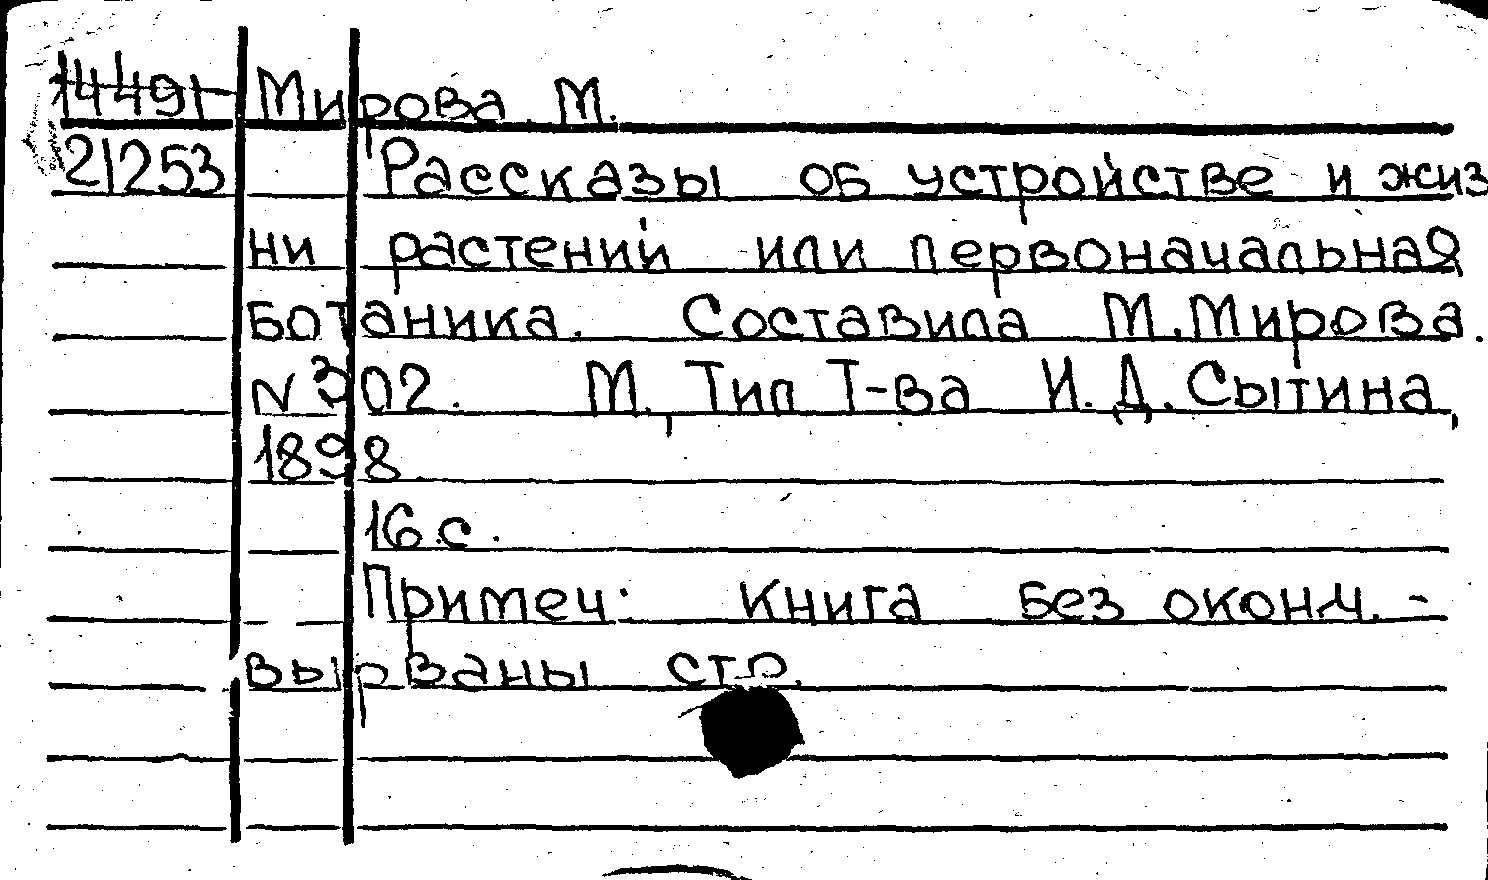 14491 Мирова М.
21253 Рассказы об устройстве и жиз
ни растений или первоначальная
ботаника. Составила М. Мирова.
N 302. М., Тип Т-ва И. Д. Сытина,
1898
16 с.
Примеч: книга без оконч. -
вырваны стр.